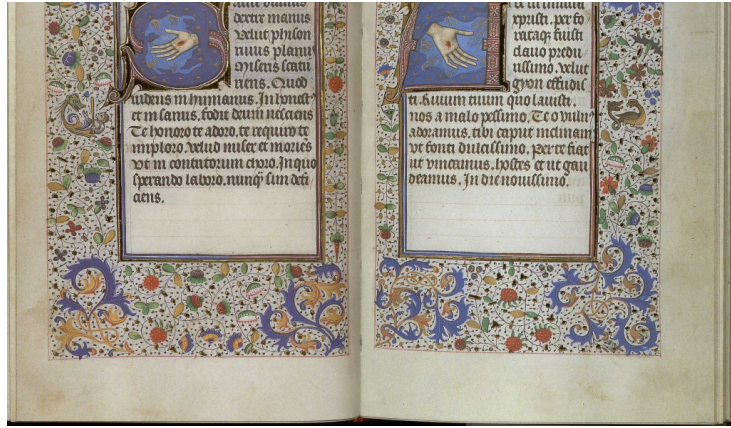 dextre manus
velut phison
rivus planus
Quod
iudeus inhumanus. In honest
et insanus, fodit deum nesciens
Te honoro te adoro, te requiro te
imploro, velud miser et moriēs
vt in contritorum choro. In quo
sperando laboro, nunqȝ sim defi
ciens.
xp̄iste, per fo
ratāqȝ fuisti
clauo predu
rissimo, velut
gyon effudis
ti. fluuium tuum quo lauisti
nos a malo pessimo. Te o vuln
adoramus, tibi caput inclinam
ut fonti dulcissimo. per te fiat
ut vincamus, hostes et ut gau
deamus. In die nouissimo.